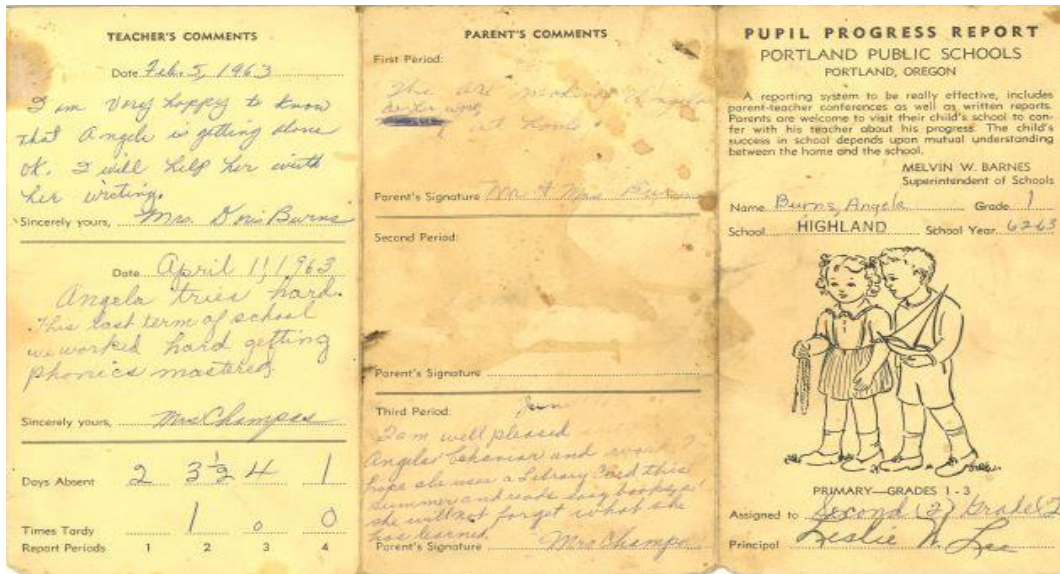 TEACHER'S COMMENTS
Date Feb. 5, 1963
I am very happy to know
that Angela is getting alone
ok. I will help her with
her writing.
Sincerely yours, Mrs. Doris Burns
Date April 11, 1963
Angela tries hard.
This last term of school
we worked hard getting
phonics mastered.
Sincerely yours, Mrs Champas
Days Absent 2 3½ 4 1
Times Tardy 1 0 0
Report Periods 1 2 3 4
PARENT'S COMMENTS
First Period:
are making Angela
work
at home
Parent's Signature Mr & Mrs Burns
Second Period:
Parent's Signature
Third Period:
I am well pleased
Angelas behavior and work. I
hope she uses a Library Card this
summer and reads easy books so
she will not forget what she
has learned.
Parent's Signature Mrs Champ
PUPIL PROGRESS REPORT
PORTLAND PUBLIC SCHOOLS
PORTLAND, OREGON
A reporting system to be really effective, includes
parent-teacher conferences as well as written reports.
Parents are welcome to visit their child's school to con-
fer with his teacher about his progress. The child's
success in school depends upon mutual understanding
between the home and the school.
MELVIN W. BARNES
Superintendent of Schools
Name Burns, Angela Grade 1
School HIGHLAND School Year 62-63
PRIMARY—GRADES 1 - 3
Assigned to Second (2) Grade (2
Principal Leslie N. Lee